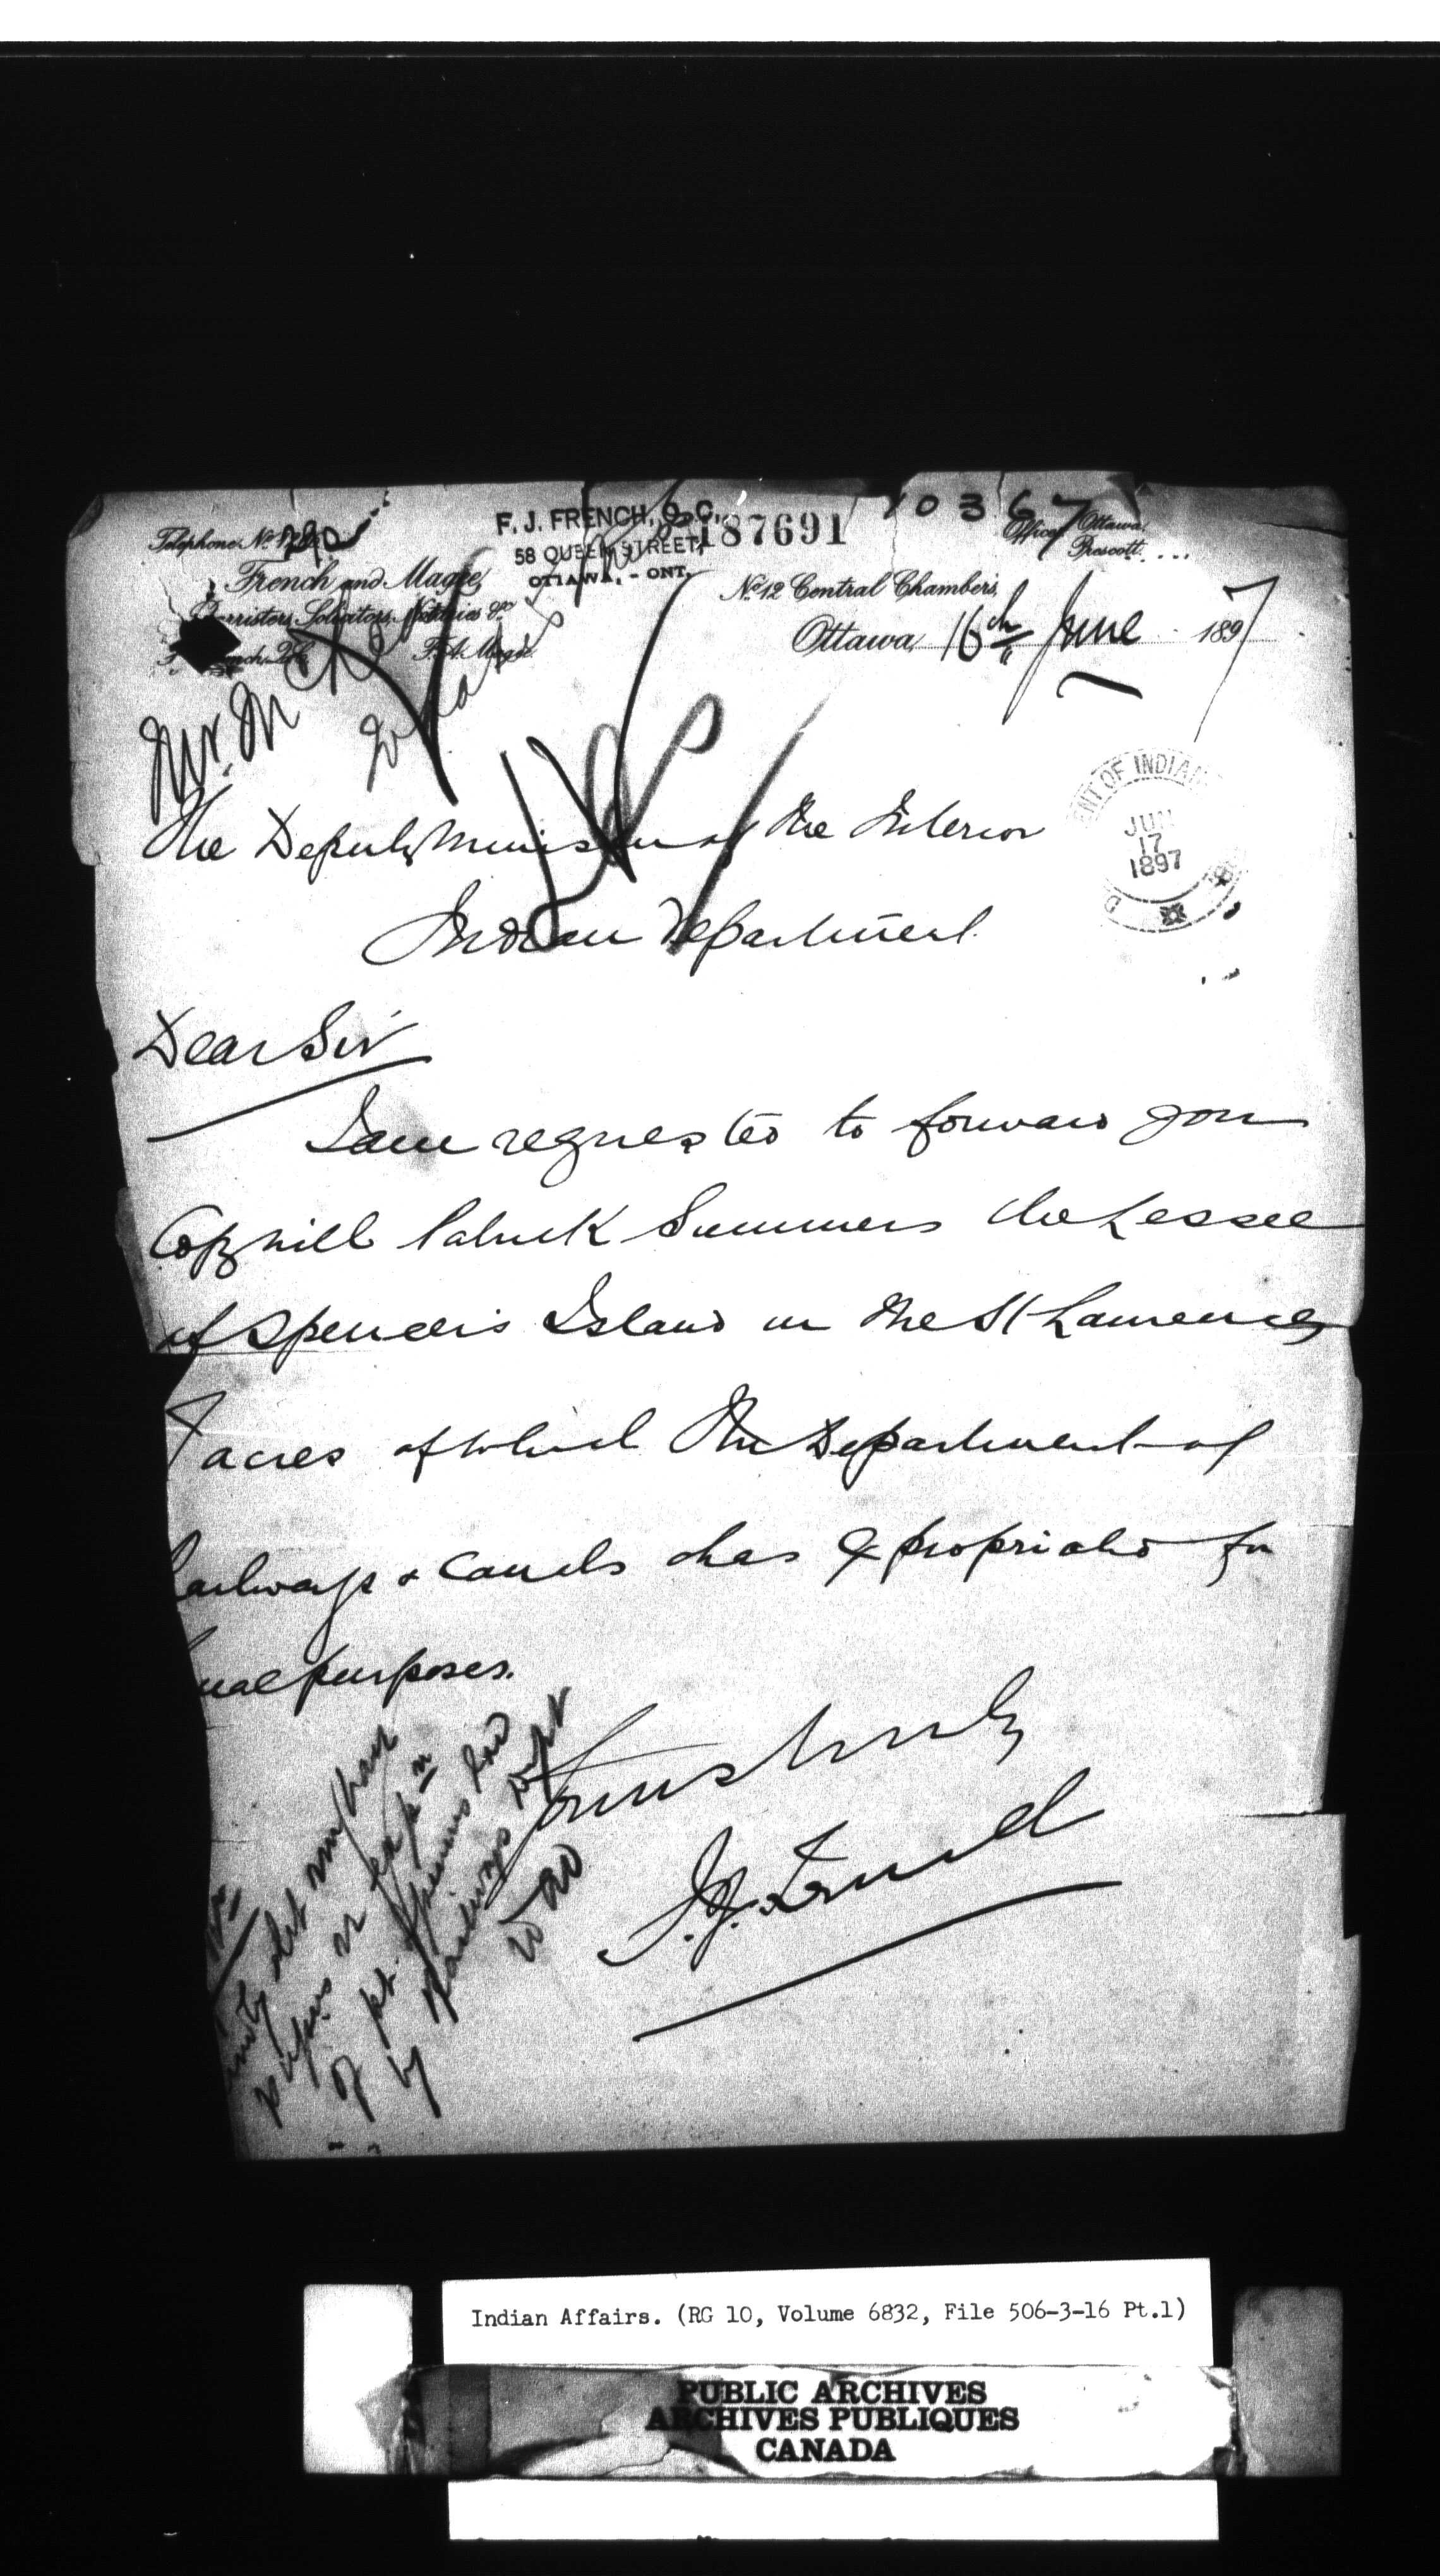 10367
Telephone No.
F. J. FRENCH, Q. C.
58 QUEEN STREET,
OTTAWA, - ONT.
187691
Offices Ottawa.
Prescott.
French and Magee
Barristers, Solicitors, Notaries &c
F. A. Magee
No. 12 Central Chambers,
Ottawa, 16th June 1897
Mr. M
The Deputy Minister of the Interior
Indian Department.
DEPARTMENT OF INDIAN
JUN
17
1897
Dear Sir
I am requested to forward you
Copy will Patrick Summers the Lessee
of Spencers Island in the St Lawrence
7 acres of which the Department of
Railways & Canals has expropriated for
Canal purposes.
Yours truly
F. J. French
of pt.
by Railways Dept
Indian Affairs. (RG 10, Volume 6832, File 506-3-16 Pt.1)
PUBLIC ARCHIVES
ARCHIVES PUBLIQUES
CANADA